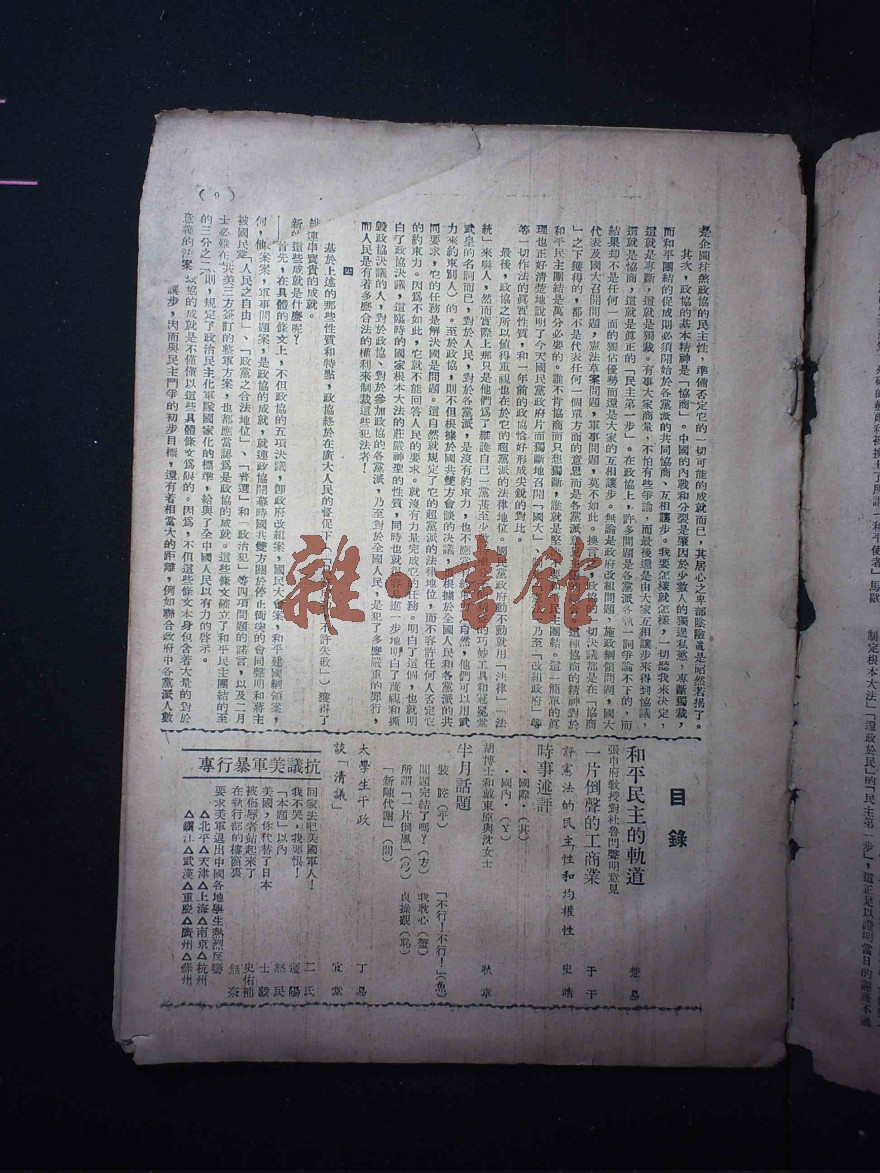 (9)
是企圖抹煞政協的民主性，準備否定它的一切可能的成就而已，其居心之卑鄙陰險眞是昭然若揭了。
其次，政協的基本精神是「協商」。中國的內戰和分裂是肇因於少數人的獨逞私慾，專斷獨裁，
而和平團結的促成則必須開始於各黨派的共同協商、互相讓步。我要怎樣就怎樣，一切聽我來決定，
這就是專斷，這就是獨裁。有事大家商量，不怕有些爭論，而最後還是由大家互相讓步來得到協議，
這就是協商，這就是眞正的「民主第一步」。在政協上，許多問題是各黨派各執一詞爭論不下的，而
結果却不是任何一面的獨佔優勢而還是大家的互相讓步。無論是政府改組問題，施政綱領問題，國大
代表及國大召開問題，憲法草案問題，軍事問題，莫不如此。換言之，政協的一切決議都是在「協商
」之下獲得的，都不是代表任何一個單方面的意思而是各黨派
和平民主團結是萬分必要的。誰不肯協商而只想獨斷，誰就是堅 民主團結。這一簡單的眞
理也正好清楚地說明了今天國民黨政府片面獨斷地召開「國大」 乃至「改組政府」等
等一切作法的眞實性質，和一年前的政協恰好形成尖銳的對比。
最後，政協之所以值得重視也在於它的超黨派的法律地位。國民黨政府動不動就用「法律」「法
統」來唬人，然而實際上那只是他們爲了維護自己一黨甚至少 的巧妙工具和冠冕堂
武皇的名詞而已，對於人民，對於各黨派，是沒有約束力，也不應 自然，他們可以用武
力來約束別人）的。至於政協，則不但根據於國共雙方會談的決議 根據於全國人民和各黨派的共
同要求，它的任務是解決國是問題。這自然就規定了它的超黨派的法律地位，而不容許任何人否定它
的約束力。因爲不如此，它就不能回答人民的要求。就沒有力量完成它的任務。明白了這個，也就明
白了政協決議，這臨時的國家根本大法的莊嚴神聖的性質，同時也就很容易進一步地明白了蔑視和撕
毀政協決議的人，對於政協、對於參加政協的各黨派，乃至對於全國人民，是犯了多麼嚴重的罪行，
而人民是有着多麼合法的權利來制裁這些犯法者！
四
基於上述的那些性質和特點，政協終於在廣大人民的督促下（ 不許失敗」）獲得了
連串寶貴的成就。
這些成就是什麼呢？
首先，在具體的條文上，不但政協的五項決議，卽政府改組案，國民大會案，和平建國綱領案，
案，軍事問題案，是政協的成就，就連政協開幕時國共雙方關於停止衝突的會同聲明和蔣主
「人民之自由」、「政黨之合法地位」、「普選」和「政治犯」等四項問題的諾言，以及二月
共美三方簽訂的整軍方案，也都應當認爲是政協的成就。這些條文確立了和平民主團結的至
的三分之二 則，規定了政治民主化軍隊國家化的標準，給與了全中國人民以有力的啓示。
政協的成就是不僅僅以這些具體條文爲限的。因爲，不但這些條文本身包含着大量的對於
讓步，因而與民主鬥爭的初步目標，還有着相當大的距離，例如聯合政府中各黨派人數
目錄
和平民主的軌道 楚易
張申府教授對杜魯門聲明意見
一片倒聲的工商業 于干
評憲法的民主性和均權性 史靖
時事述評
・國際・（其）
・國內・（Y）
胡博士和戴東原與沈女士 耿章
半月話題
裝睦（平） 「不行！不行！」（魚）
問題完結了嗎？（方） 我耽心（蟹）
所謂「一片倒風」（ㄅ） 貞操觀（恥）
「新陳代謝」（間）
大學生平政 丁易
談「清議」 宜常
抗議美軍暴行專
回家去吧美國軍人！ 二氏
我不哭，我要恨！ 遼陽
「本題」以內 怒民
美國，你代替了日本 士毅
被侮辱者站起來了 史佑補
在執行部的樓窗裏 無奈
要求美軍退出中國各地學生熱烈反響
△北平△天津△上海△南京△杭州
△鎭江△武漢△重慶△廣州△蘇州
雜・書館
制定根本大法」「還政於民」的「民主第一步」，這正足以證明當日的